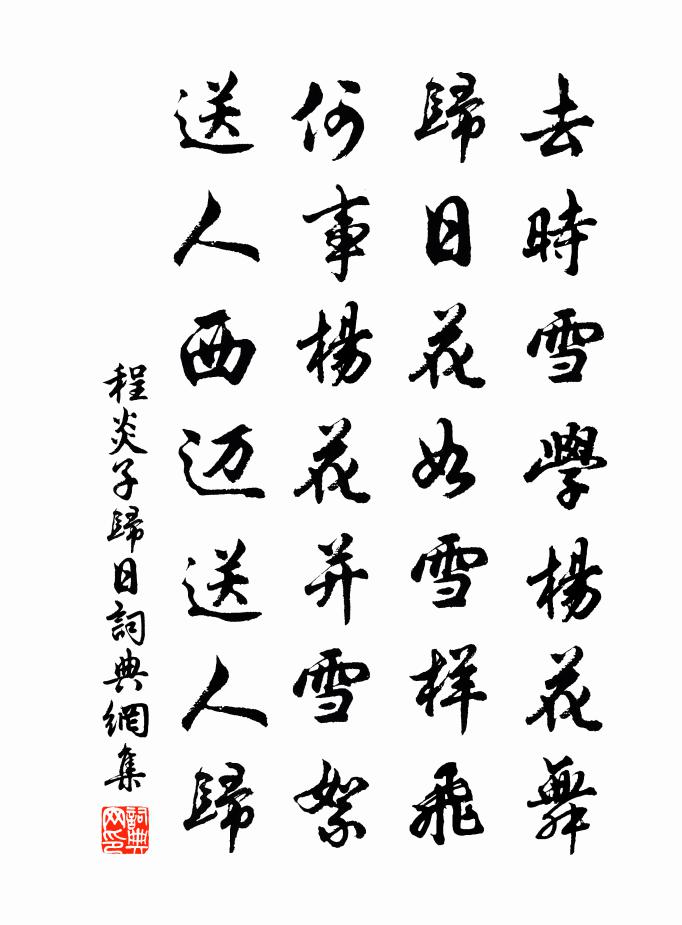 去時雪學楊花舞
歸日花如雪样飛
何事楊花并雪絮
送人西迈送人歸
程炎子歸日詞典網集
詞典网印